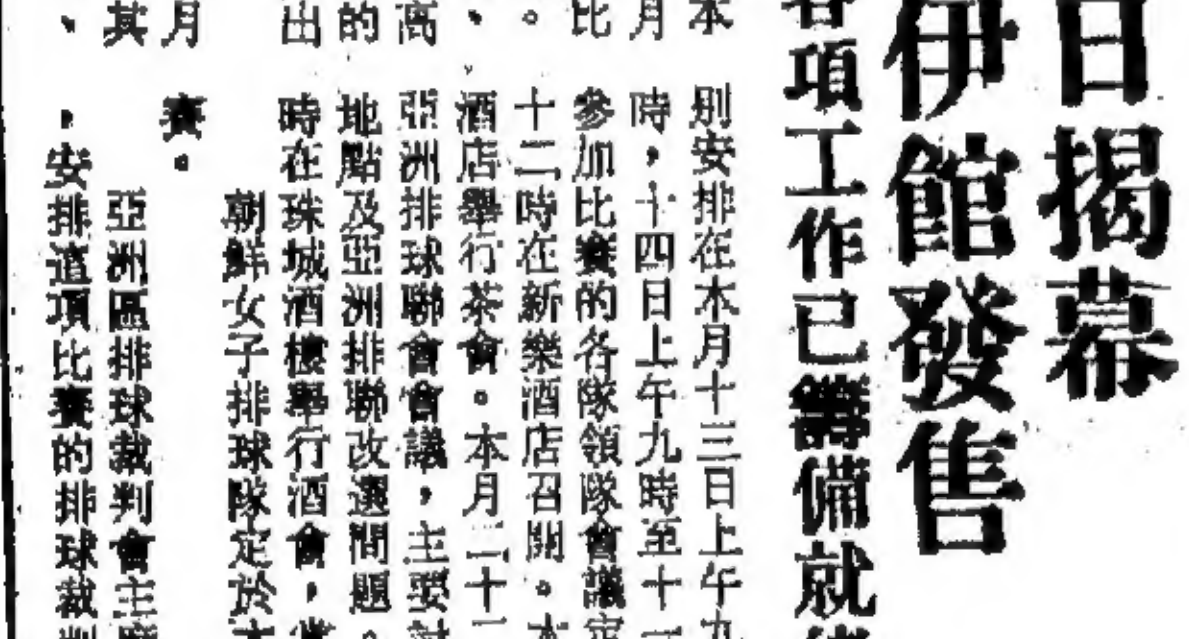 日揭幕
伊館發售
各項工作已籌備就緒
本
別安排在本月十三日上午九
月
時，十四日上午九時至十一
比
參加比賽的各隊領隊會議定
。
十二時在新樂酒店召開。本
、
酒店舉行茶會。本月二十二
高
亞洲排球聯會會議，主要討
的
地點及亞洲排聯改選問題。
出
時在珠城酒樓舉行酒會，
朝鮮女子排球隊定於本
月
賽。
其
亞洲區排球裁判會主
、
，安排這項比賽的排球裁判